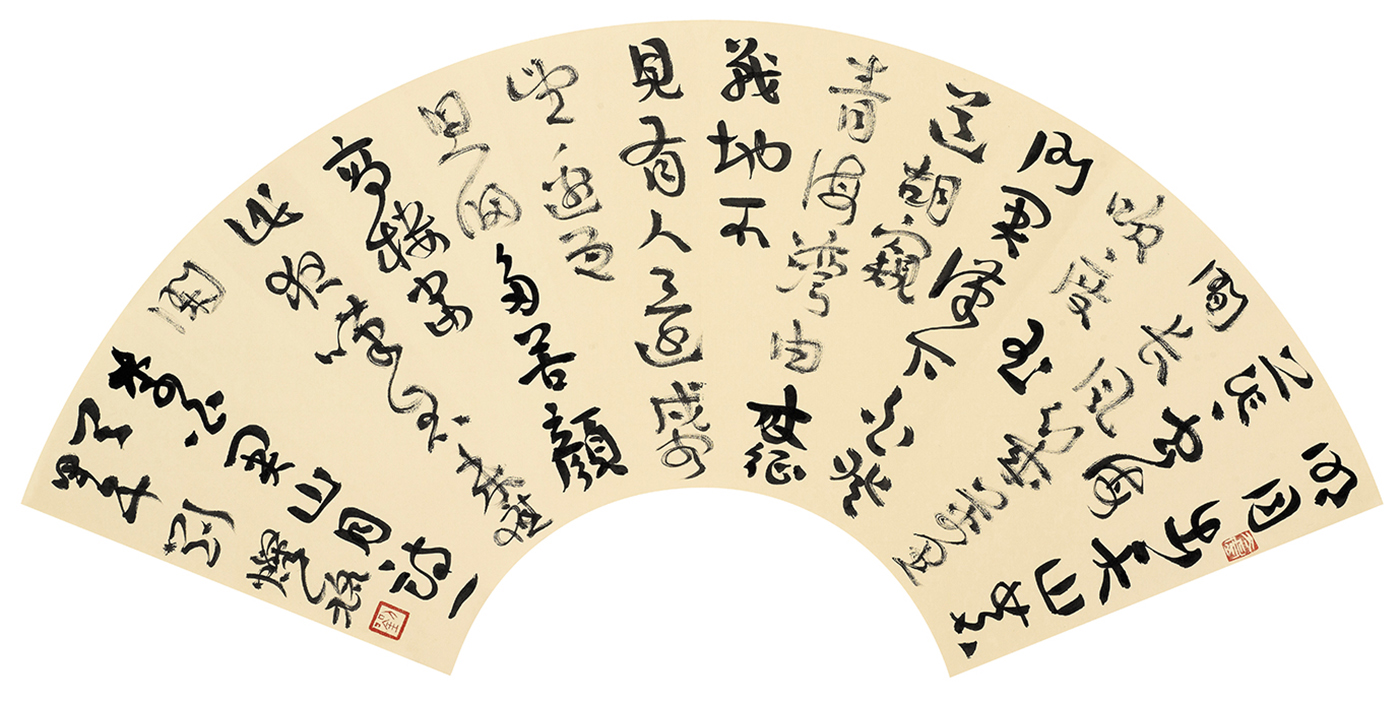 明月出天山蒼
茫雲海
間長風幾萬里
吹度玉
門關漢下白登
道胡窺
青海灣由來征
戰地不
見有人還戍客
望邊邑
思歸多苦顏
高樓當
此夜歎息未應
閒
李白關山月詩一
劉燦銘